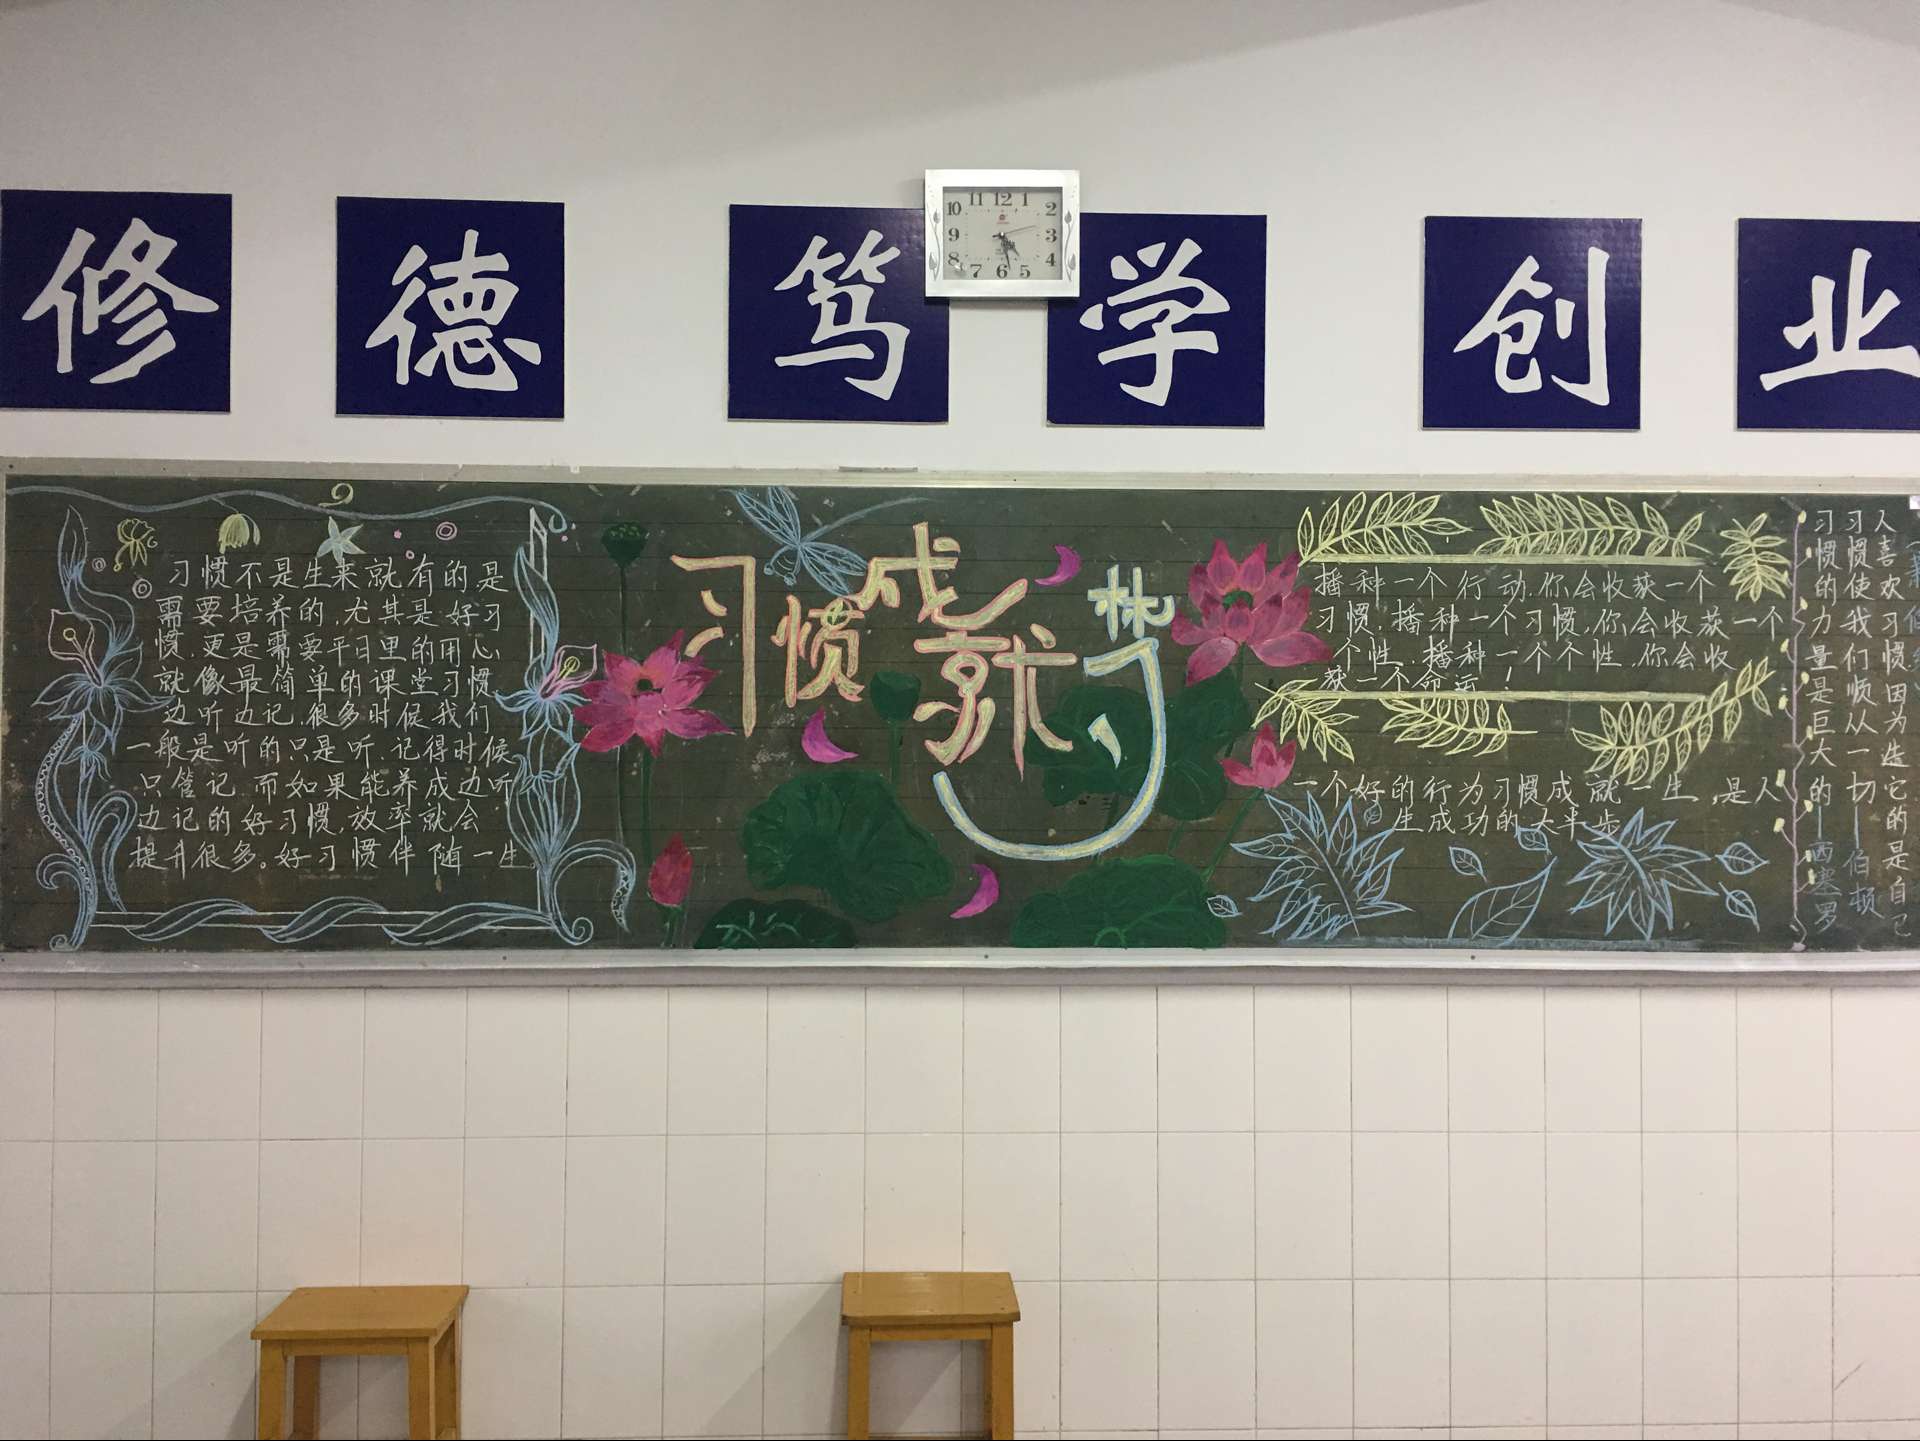 修德 笃学 创业
11 12 1
10 2
9 3
8 4
7 6 5
习惯不是生来就有的是
需要培养的,尤其是好习
惯,更是需要平日里的用心
就像最简单的课堂习惯
边听边记,很多时候我们
一般是听的只是听,记得时候
只管记,而如果能养成边听
边记的好习惯,效率就会
提升很多。好习惯伴随一生
习惯成就梦
播种一个行动,你会收获一个
习惯,播种一个习惯,你会收获一个
个性,播种一个个性,你会收
获一个命运!
一个好的行为习惯成就一生,是人
生成功的大半步
习惯的力量是巨大的——西塞罗
习惯使我们顺从一切——伯顿
人喜欢习惯因为造它的是自己